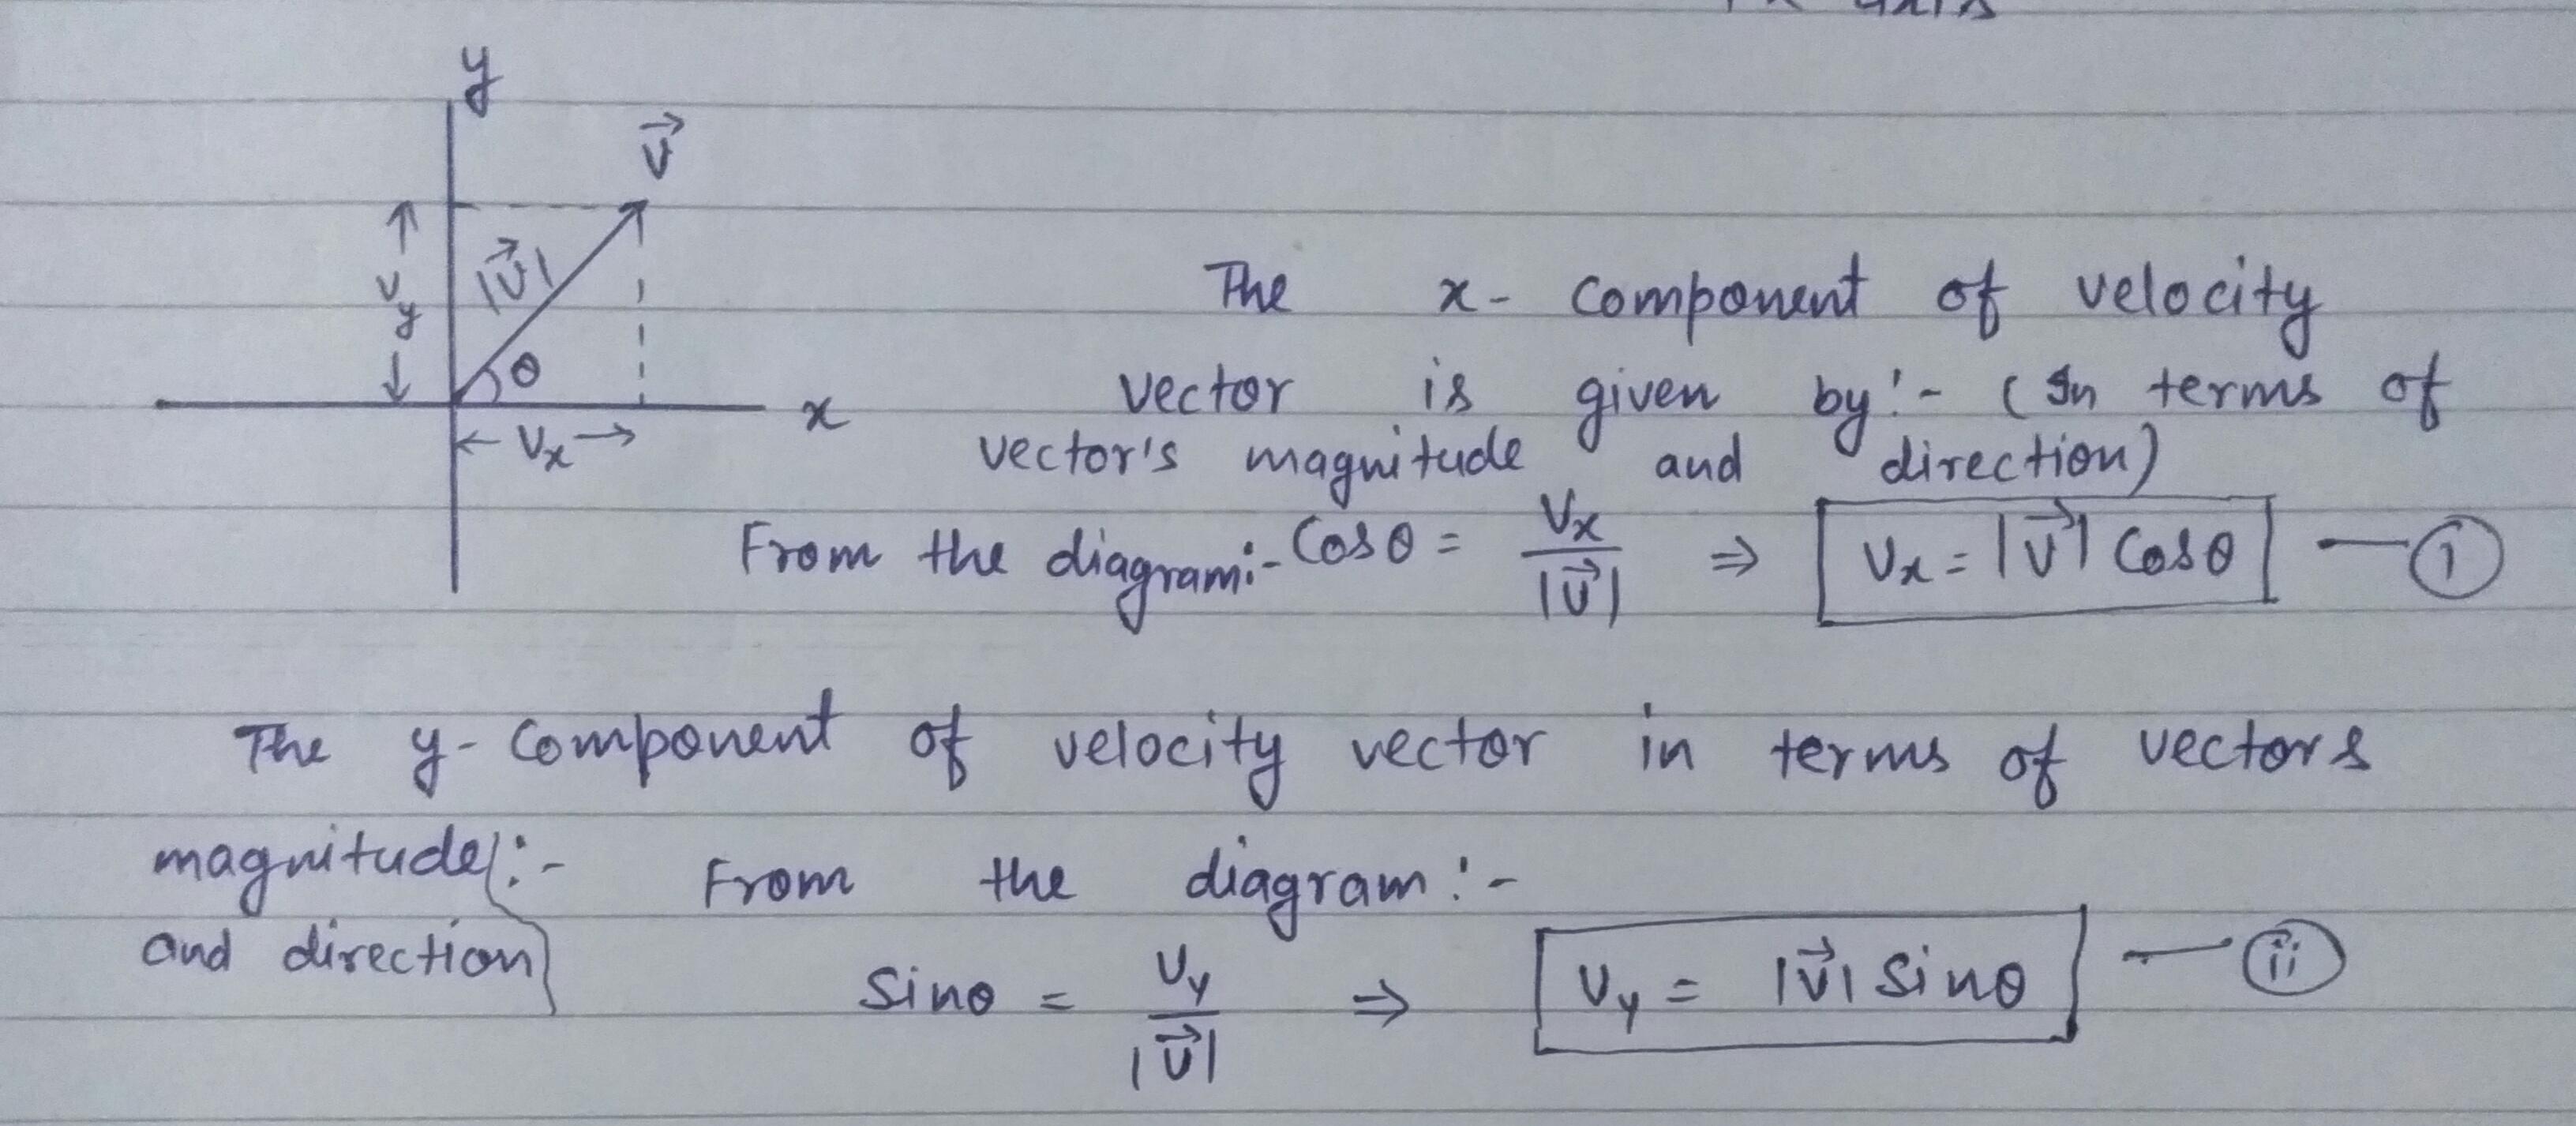 axis
y
v⃗
|v⃗|
vy
θ
x
← Vx →
The x- component of velocity
vector is given by:- (In terms of
vector's magnitude and direction)
From the diagram:- Cosθ = Vx/|v⃗| ⇒ Vx = |v⃗| Cosθ — (i)
The y- component of velocity vector in terms of vectors
magnitude :- From the diagram :-
and direction
Sinθ = Vy/|v⃗| ⇒ Vy = |v⃗| Sinθ — (ii)